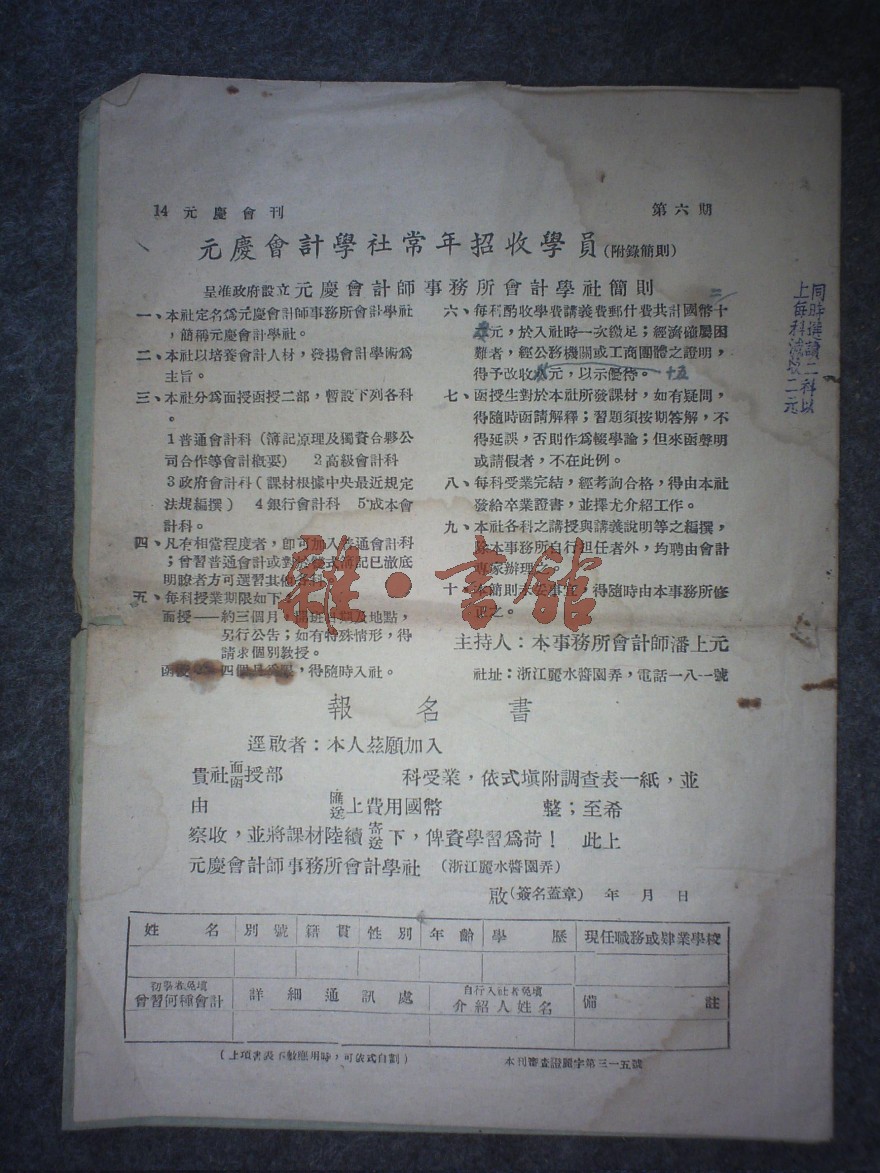 14 元慶會刊
第六期
元慶會計學社常年招收學員(附錄簡則)
呈准政府設立元慶會計師事務所會計學社簡則
一、本社定名爲元慶會計師事務所會計學社
，簡稱元慶會計學社。
二、本社以培養會計人材，發揚會計學術爲
主旨。
三、本社分爲面授函授二部，暫設下列各科
。
1普通會計科(簿記原理及獨資合夥公
司合作等會計概要) 2高級會計科
3政府會計科(課材根據中央最近規定
法規編撰) 4銀行會計科 5成本會
計科。
四、凡有相當程度者，卽可加入普通會計科
；曾習普通會計或對於複式簿記已澈底
明瞭者方可選習其他各科
五、每科授業期限如下
面授——約三個月，開班日期及地點，
另行公告；如有特殊情形，得
請求個別教授。
函授 四個月 ，得隨時入社。
六、每科酌收學費講義費郵什費共計國幣十
二
元，於入社時一次繳足；經濟確屬困
難者，經公務機關或工商團體之證明，
得予改收 元，以示優待。 十五
七、函授生對於本社所發課材，如有疑問，
得隨時函請解釋；習題須按期答解，不
得延誤，否則作爲輟學論；但來函聲明
或請假者，不在此例。
八、每科受業完結，經考詢合格，得由本社
發給卒業證書，並擇尤介紹工作。
九、本社各科之講授與講義說明等之編撰，
除本事務所自行担任者外，均聘由會計
專家辦理之
十、本簡則未妥事宜，得隨時由本事務所修
正之。
主持人：本事務所會計師潘上元
社址：浙江麗水醬園弄，電話一八一號
同時選讀二科以
上每科減收二元
雜·書館
報名書
逕啟者：本人茲願加入
貴社面函授部 科受業，依式塡附調查表一紙，並
由 匯送上費用國幣 整；至希
察收，並將課材陸續寄送下，俾資學習爲荷！ 此上
元慶會計師事務所會計學社 (浙江麗水醬園弄)
啟(簽名蓋章) 年 月 日
姓名 別號 籍貫 性別 年齡 學歷 現任職務或肄業學校
初學者免塡
曾習何種會計
詳細通訊處
自行入社者免塡
介紹人姓名
備註
(上項書表不敷應用時，可依式自劃)
本刊審查證圖字第三一五號